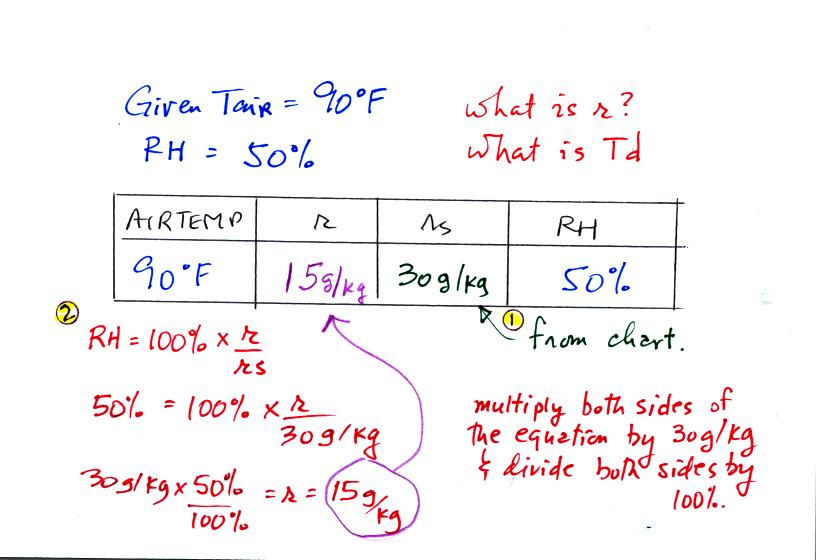 Given TAIR = 90°F
RH = 50%
what is r?
what is Td
AIR TEMP r rs RH
90°F 15g/kg 30g/kg 50%
① from chart.
②
RH = 100% x r/rs
50% = 100% x r/30g/kg
30g/kg x 50%/100% = r = 15g/kg
multiply both sides of
the equation by 30g/kg
& divide both sides by
100%.